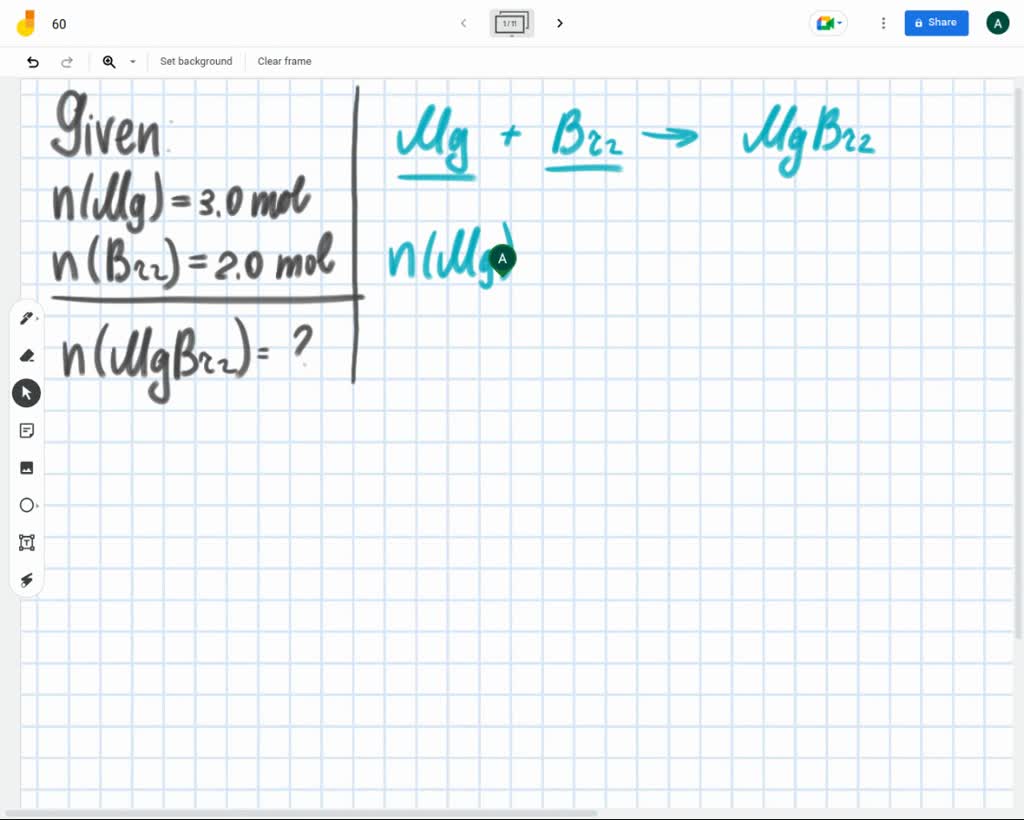 60
1/11
Share
A
Set background
Clear frame
Given:
n(Mg) = 3.0 mol
n(Br2) = 2.0 mol
n(MgBr2) = ?
Mg + Br2 → MgBr2
n(Mg)
A
T